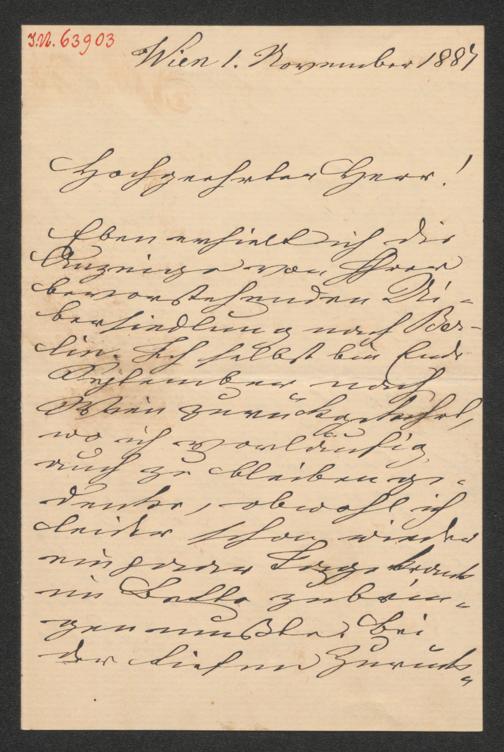 J.N. 63903
Wien 1. November 1887
Hochgeehrter Herr!
Eben erhielt ich die
Anzeige von Ihrer
bevorstehenden Ui-
bersiedlung nach Ber-
lin. Ich selbst bin Ende
September nach
Wien zurückgekehrt,
wo ich vorläufig
auch zu bleiben ge-
denke, obwohl ich
leider schon wieder
ein paar Tage krank
im Bette zubrin-
gen mußte. Bei
der tiefen Zurück-